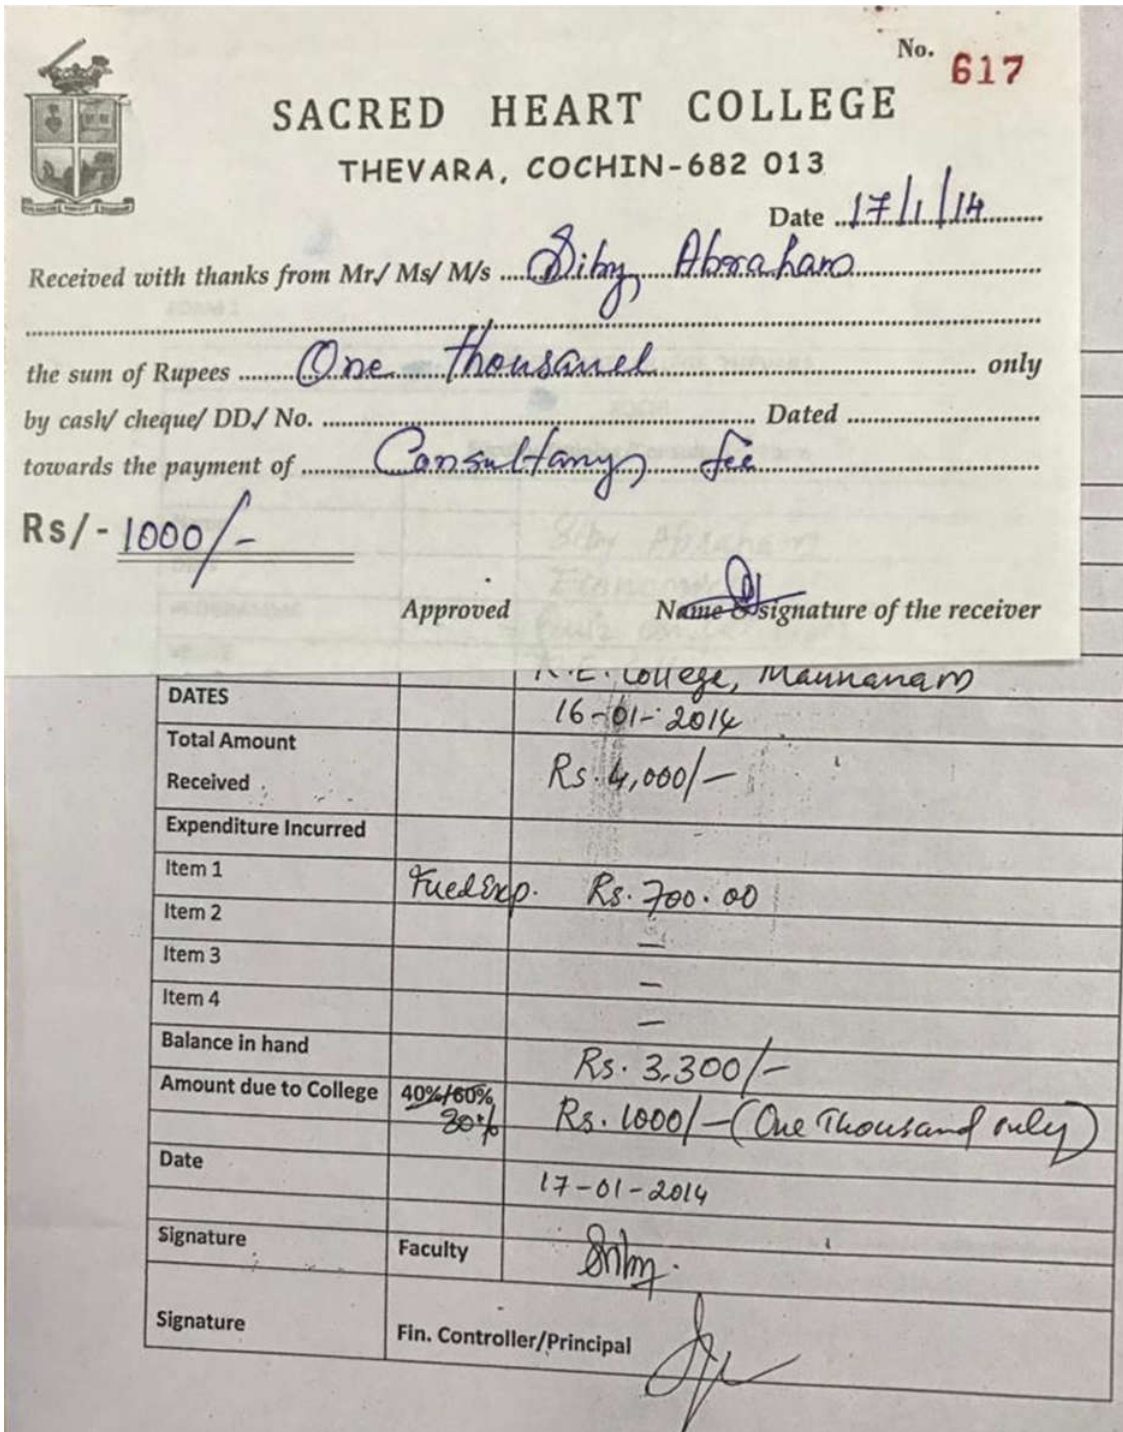 No. 617
SACRED HEART COLLEGE
THEVARA, COCHIN-682 013
Date 17/1/14
Received with thanks from Mr./ Ms/ M/s Siby Abraham
the sum of Rupees One thousand only
by cash/ cheque/ DD./ No. Dated
towards the payment of Consultany fee
Rs/- 1000/-
Siby Abraham
Approved Name & signature of the receiver
K.E. College, Mannanam
DATES 16-01-2014
Total Amount
Received Rs. 4,000/-
Expenditure Incurred
Item 1 Fuel Exp. Rs. 700.00
Item 2 —
Item 3 —
Item 4 —
Balance in hand Rs. 3,300/-
Amount due to College 40%/60% Rs. 1000/- (One Thousand only)
30%
Date 17-01-2014
Signature Faculty Siby
Signature Fin. Controller/Principal